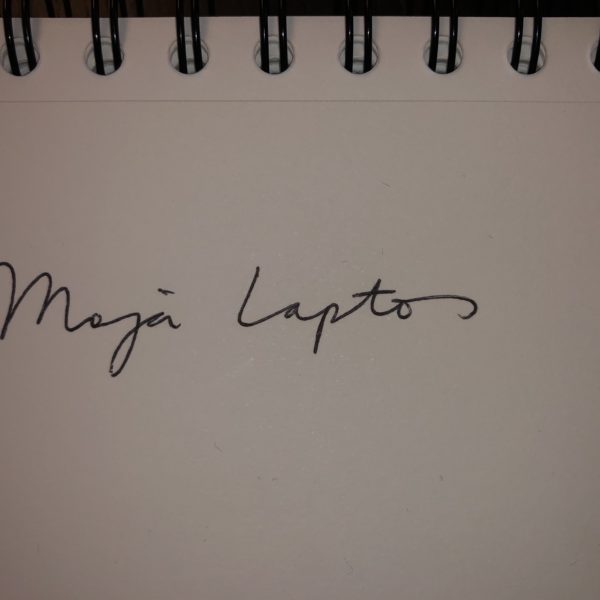 Mojà Laptos